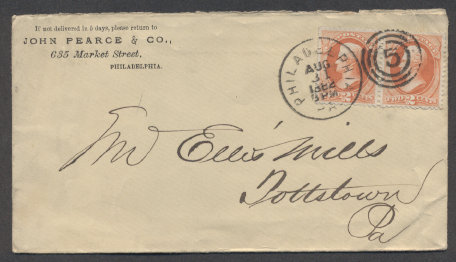 If not delivered in 5 days, please return to
JOHN PEARCE & CO.,
635 Market Street,
PHILADELPHIA.
PHILADELPHIA PA
AUG
31
5
Mr Ellis Mills
Pottstown
Pa